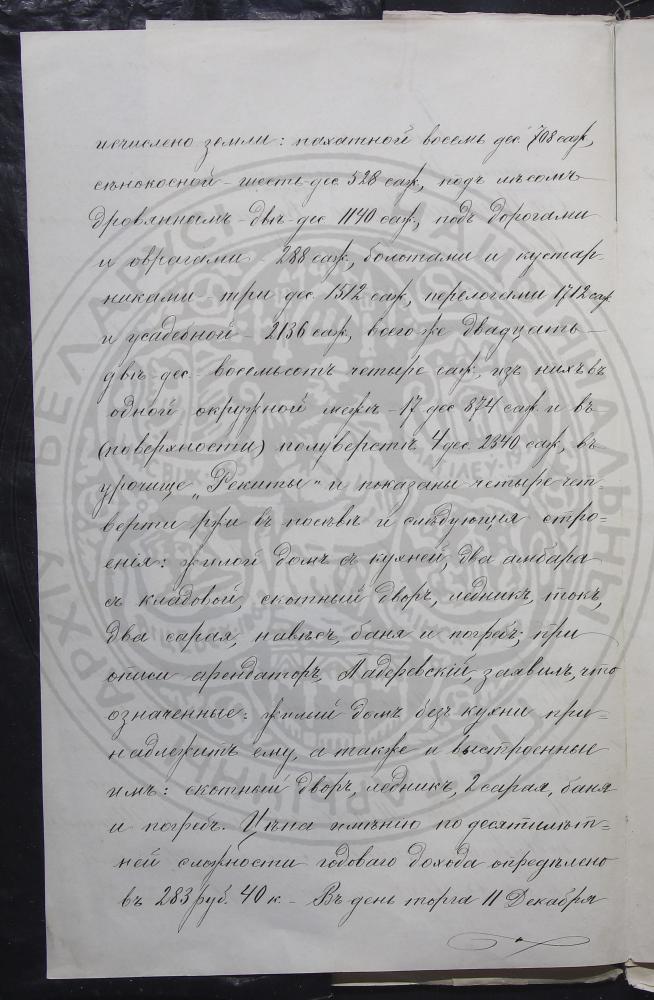 исчислено земли: пахатной восемь дес. 708 саж,
сѣнокосной – шесть дес 528 саж, подъ лѣсомъ
дровяннымъ – двѣ – дес 1140 саж, подъ дорогами
и оврагами – 288 саж, болотами и кустар-
никами – три дес. 1512 саж, перелогами 1712 саж
и усадебной – 2136 саж, всего-же двадцать –
двѣ – дес – восемьсотъ четыре саж, изъ нихъ въ
одной окружной межѣ – 17 дес 874 саж и въ
(поверхности) полуверстѣ 4 дес. 2340 саж, въ
урочище „Рекиты" и показаны четыре чет-
верти ржи въ посѣвѣ и слѣдующія стро=
енія: жилой домъ съ кухней, два амбара
съ кладовой, скотный дворъ, ледникъ, токъ,
два сарая, навѣсъ, баня и погребъ; при
описи арендаторъ, Падеревскій, заявилъ, что
означенные: жилий домъ безъ кухни при=
надлежитъ ему, а также и выстроенные
имъ: скотный дворъ, ледникъ, 2 сарая, баня
и погребъ. Цѣна имѣнію по десятилѣт=
ней сложности годоваго дохода опредѣлено
въ 283 руб. 40 к – Въ день торга 11 Декабря
НАЦЫЯНАЛЬНЫ ГІСТАРЫЧНЫ АРХІЎ БЕЛАРУСІ